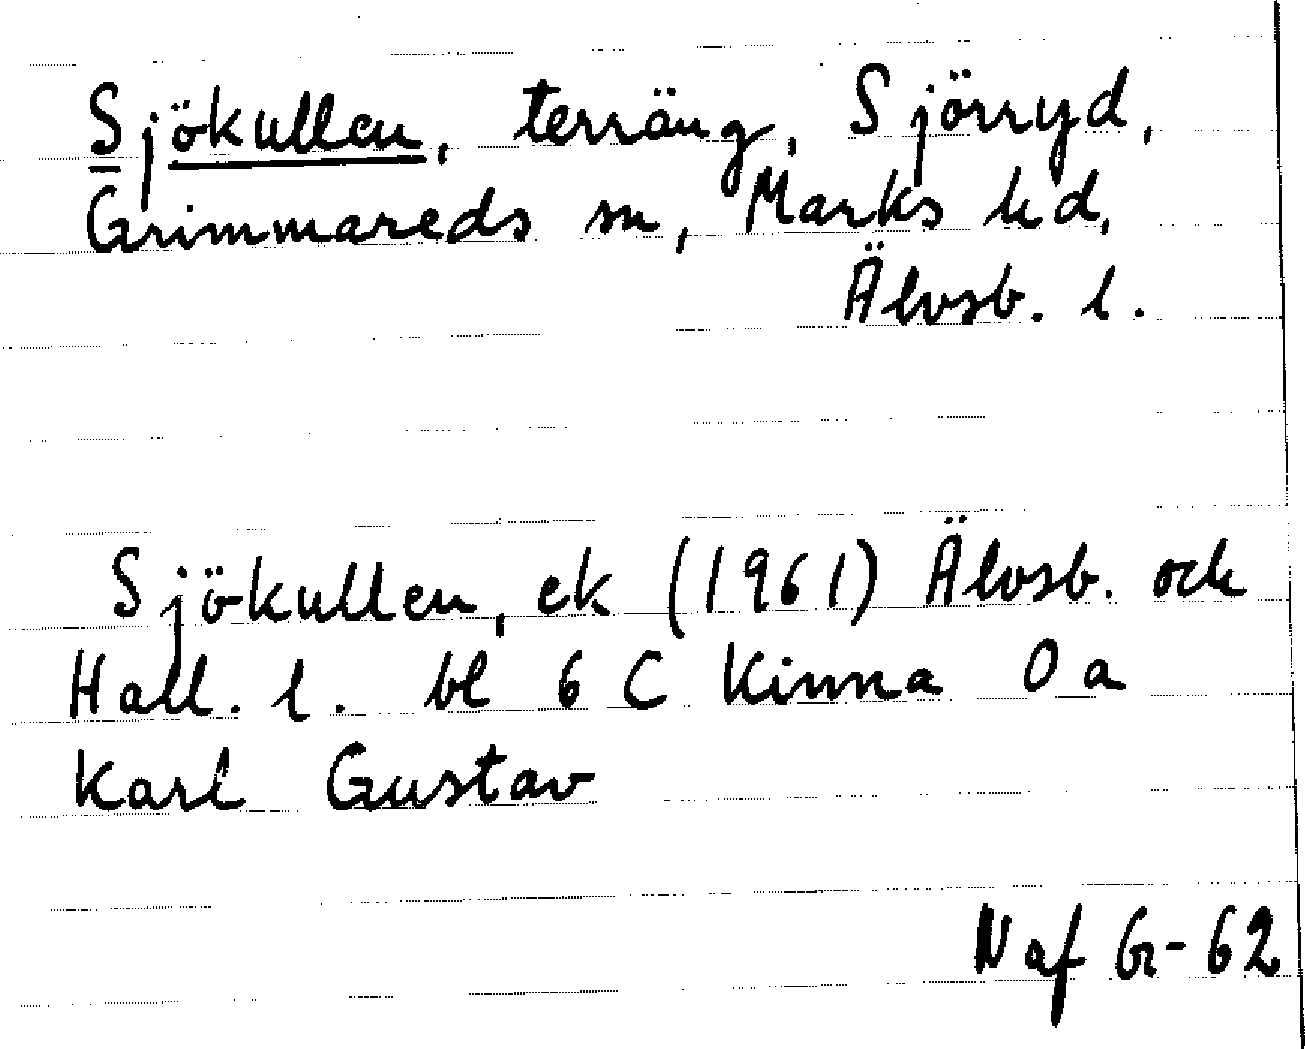 Sjökullen, terräng, Sjörryd,
Grimmareds sn, Marks hd,
Älvsb. l.
Sjökullen, ek (1961) Älvsb. och
Hall. l. bl 6 C Kinna 0 a
Karl Gustav
N af Gr-62